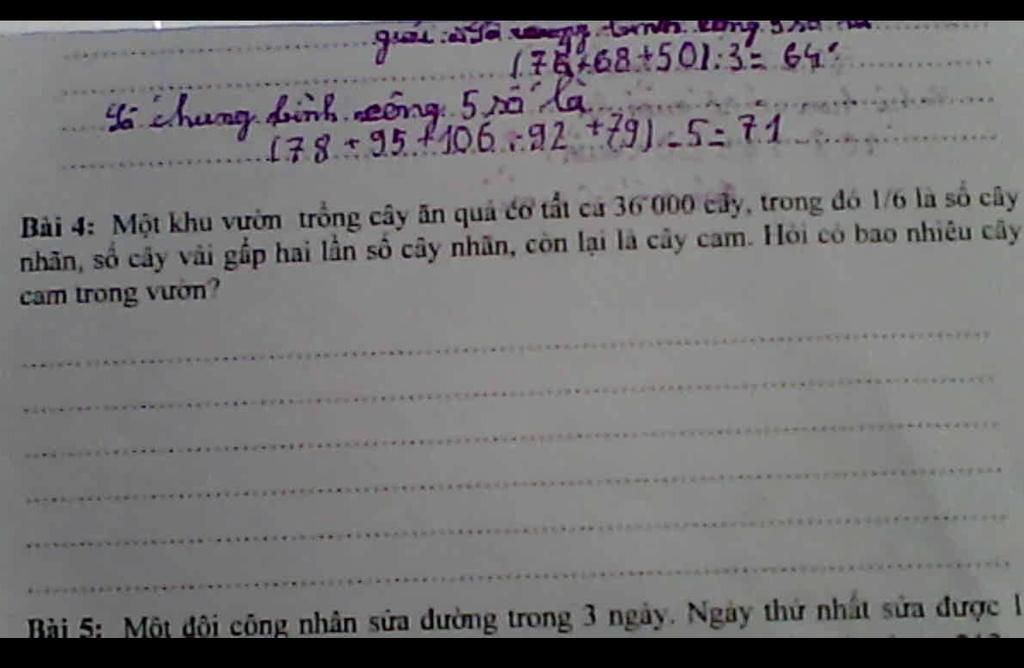 giải:
(76+68+50):3= 64
Số chung bình công 5 số là
(78+95+106+92+79)-5=71
Bài 4: Một khu vườn trồng cây ăn quả có tất cả 36 000 cây, trong đó 1/6 là số cây
nhãn, số cây vải gấp hai lần số cây nhãn, còn lại là cây cam. Hỏi có bao nhiêu cây
cam trong vườn?
Bài 5: Một đội công nhân sửa đường trong 3 ngày. Ngày thứ nhất sửa được 1